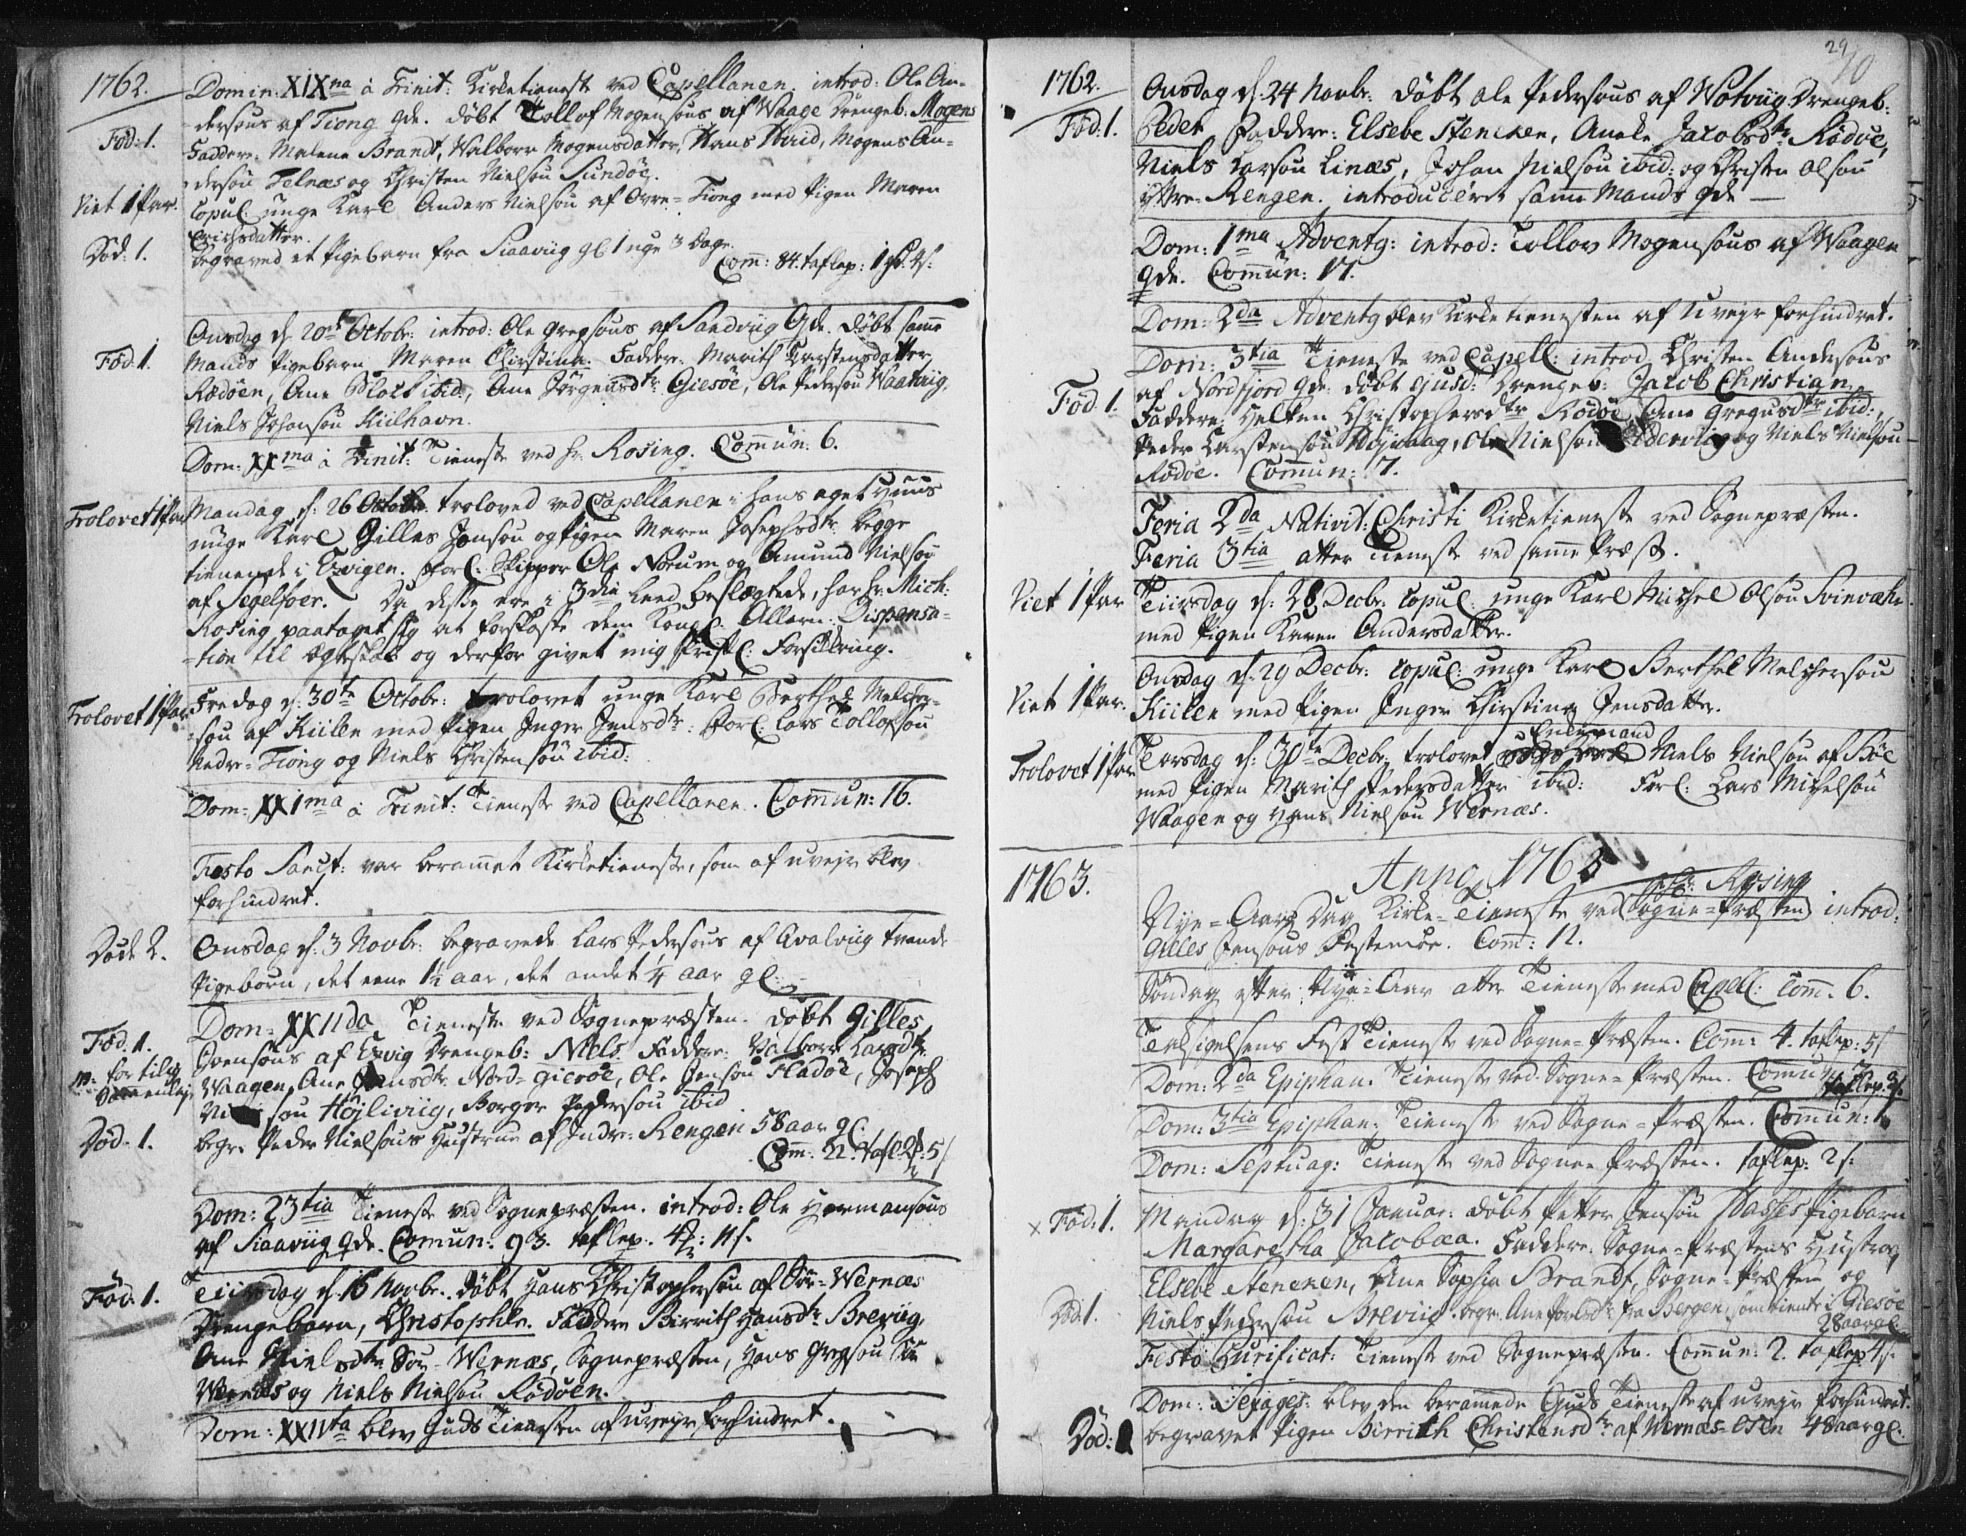 1762.
Domin: XIXna à Trinit: Kirketieneste ved Capellanen. introd: Ole An-
dersöns af Tiong qde. döbt Tollof Mogensöns af Waage Drengeb: Mogens
Föd: 1.
Faddere: Malene Brandt, Walborr Mogensdatter, Hans ibid, Mogens An-
dersön Telnæs og Christen Nielsön Sundöe.
Viet 1 Par.
Copul: unge Karl Anders Nielsön af Ovre-Tiong med Pigen Maren
Erichsdatter.
Död: 1.
begraved et Pigebarn fra Siaaviig gl 1 uge 3 Dage.
Com: 84. taflep:
Onsdag d. 20de Octobr: introd: Ole Gregsöns af Sandviig Qde. döbt samme
Föd: 1.
Mands Pigebarn Maren Christina. Faddere: Marith Carstensdatter
Rödöen, Ane Block ibid, Ane Jörgensdtr Giesöe, Ole Pedersön Waatviig,
Niels Johansön Kiilhavn.
Dom: XXma à Trinit: Tieneste ved Hr. Rosing. Comun: 6.
Trolovet 1 Par
Mandag d. 26 Octobr. troloved ved Capellanen i hans eget Huus
unge Karl Gilles Jonsön og Pigen Maren Josephsdtr. begge
tienende i Esvigen. Forl: Skipper Ole Norum og Amund Nielsön
af Segelfoer. Da disse ere i 3die Leed beslægtede, har Hr. Mich:
Rosing paataget sig at forskaffe dem Kongl: Allern: Dispensa-
=tion til Egteskab og derfor givet mig skriftl: Forsikring.
Trolovet 1 Par
Fredag d. 30te Octobr: trolovet unge Karl Berthel Melcher-
sön af Kiilen med Pigen Inger Jensdtr: Forl: Lars Tollofsön
Nedre-Tiong og Niels Christensön ibid:
Dom: XXIma à Trinit: Tieneste ved Capellanen. Comun: 16.
Festo Sanct: var berammet Kirketieneste, som af uvejr blev
forhindret.
Döde 2.
Onsdag d. 3 Novbr: begravede Lars Pedersöns af Qvalviig tvende
Pigebörn, det eene 1½ aar, det andet ¼ aar gl:
Dom: XXIIda Tieneste ved Sognepræsten. döbt Gilles
Föd. 1.
Ovensöns af Esvig Drengeb: Niels. Faddere: Valborr Larsdtr
for tilig
Waagen, Ane Jensdtr Nord-Gieröe, Ole Jensön Fladöe, Joseph
sön Höjliviig, Borger Pedersön ibid
Död: 1.
begr. Peder Nielsöns Hustrue af Indre-Rengen 58 aar gl.
Com: 22.
Dom: 23tia Tieneste ved Sognepræsten. introd: Ole Hermansöns
af Siaaviig qde. Comun: 93. taflep.
Föd: 1.
Tiirsdag d. 16 Novbr. döbt Hans Christophersön af Sör-Wernæs
Drengebarn, Christopher. Faddere Birrith Hansdtr Breviig,
Ane Nielsdtr Sör-Wernæs, Sognepræsten, Hans Gregsön
Wernæs og Niels Nielsön Rödöen.
Dom: XXIIta blev Guds Tienesten af uvejr forhindret.
29
1762.
Onsdag d: 24 Novbr: döbt Ole Pedersöns af Wotviig Drengeb:
Föd: 1.
Peder Faddere: Elsebe Stencken, Aneke Jacobsdtr Rödöe,
Niels Larsön Linæs, Johan Nielsön ibid: og Christen Olsön
yttre-Rengen. introduceret samme Mands qde
Dom: 1ma Adventg: introd: Tollov Mogensöns af Waagen
qde. Comun: 17.
Dom: 2da Adventg blev Kirketienesten af Uvejr forhindret.
Dom: 3tia Tieneste ved Capell: introd Christen Andersöns
Föd 1.
af Nordfjord qde. döbt Drengeb: Jacob Christian.
Faddere: Helken Christophersdtr Rödöe, Ane Gregusdtr ibid:,
Peder Carstensön Höjvaag, Ole Nielsön og Niels Nielsön
Rödöe. Comun: 7.
Feria 2da Nativit: Christi Kirketieneste ved Sognepræsten.
Feria 3tia atter Tieneste ved samme Præst.
Viet 1 Par
Tiirsdag d: 28 Decbr: copul: unge Karl Michel Olsön Svinvær
med Pigen Karen Andersdatter.
Viet 1 Par.
Onsdag d: 29 Decbr: copul: unge Karl Berthel Melchersön
Kiilen med Pigen Inger Christina Jensdatter.
Trolovet 1 Par
Torsdag d: 30te Decbr: trolovet Enkemand Niels Nielsön af
med Pigen Marith Pedersdatter ibid: Forl: Lars Michelsön
Waagen og Hans Nielsön Wernæs.
1763.
Anno 1763
Hr: Rosing
Nye-Aars Dag Kirke-Tieneste ved Sogne-Præsten introd:
Gilles Jensöns Festemöe. Com: 12.
Söndag efter Nye-Aar atter Tieneste med Capell: Com. 6.
Tilsigelsens Fest Tieneste ved Sogne-Præsten. Com: 4. taflep: 5
Dom: 2da Epiphan: Tieneste ved Sogne-Præsten. Comun
taflep:
Dom: 3tia Epiphan: Tieneste ved Sogne-Præsten. Comun:
Dom: Septuag: Tieneste ved Sogne Præsten. taflep: 2 s:
× Föd: 1.
Mandag d: 31 Januar: döbt Petter Jensön Dasses Pigebarn
Margaretha Jacobæa. Faddere: Sogne-Præstens Hustrue
Elsebe Stencken, Ane Sophia Brandt, Sogne-Præsten og
Död: 1.
Niels Pedersön Breviig. begr: Ane fra Bergen, som tiente i Giesöe
28 aar gl
Festo Purificat: Tieneste ved Sognepræsten. Comun: 2. taflep
Dom: Sexages: blev den berammede Guds Tieneste af uvejr forhindret.
Död:
begravet Pigen Birrith Christensdtr af Wernæs-Osen 48 aar gl.